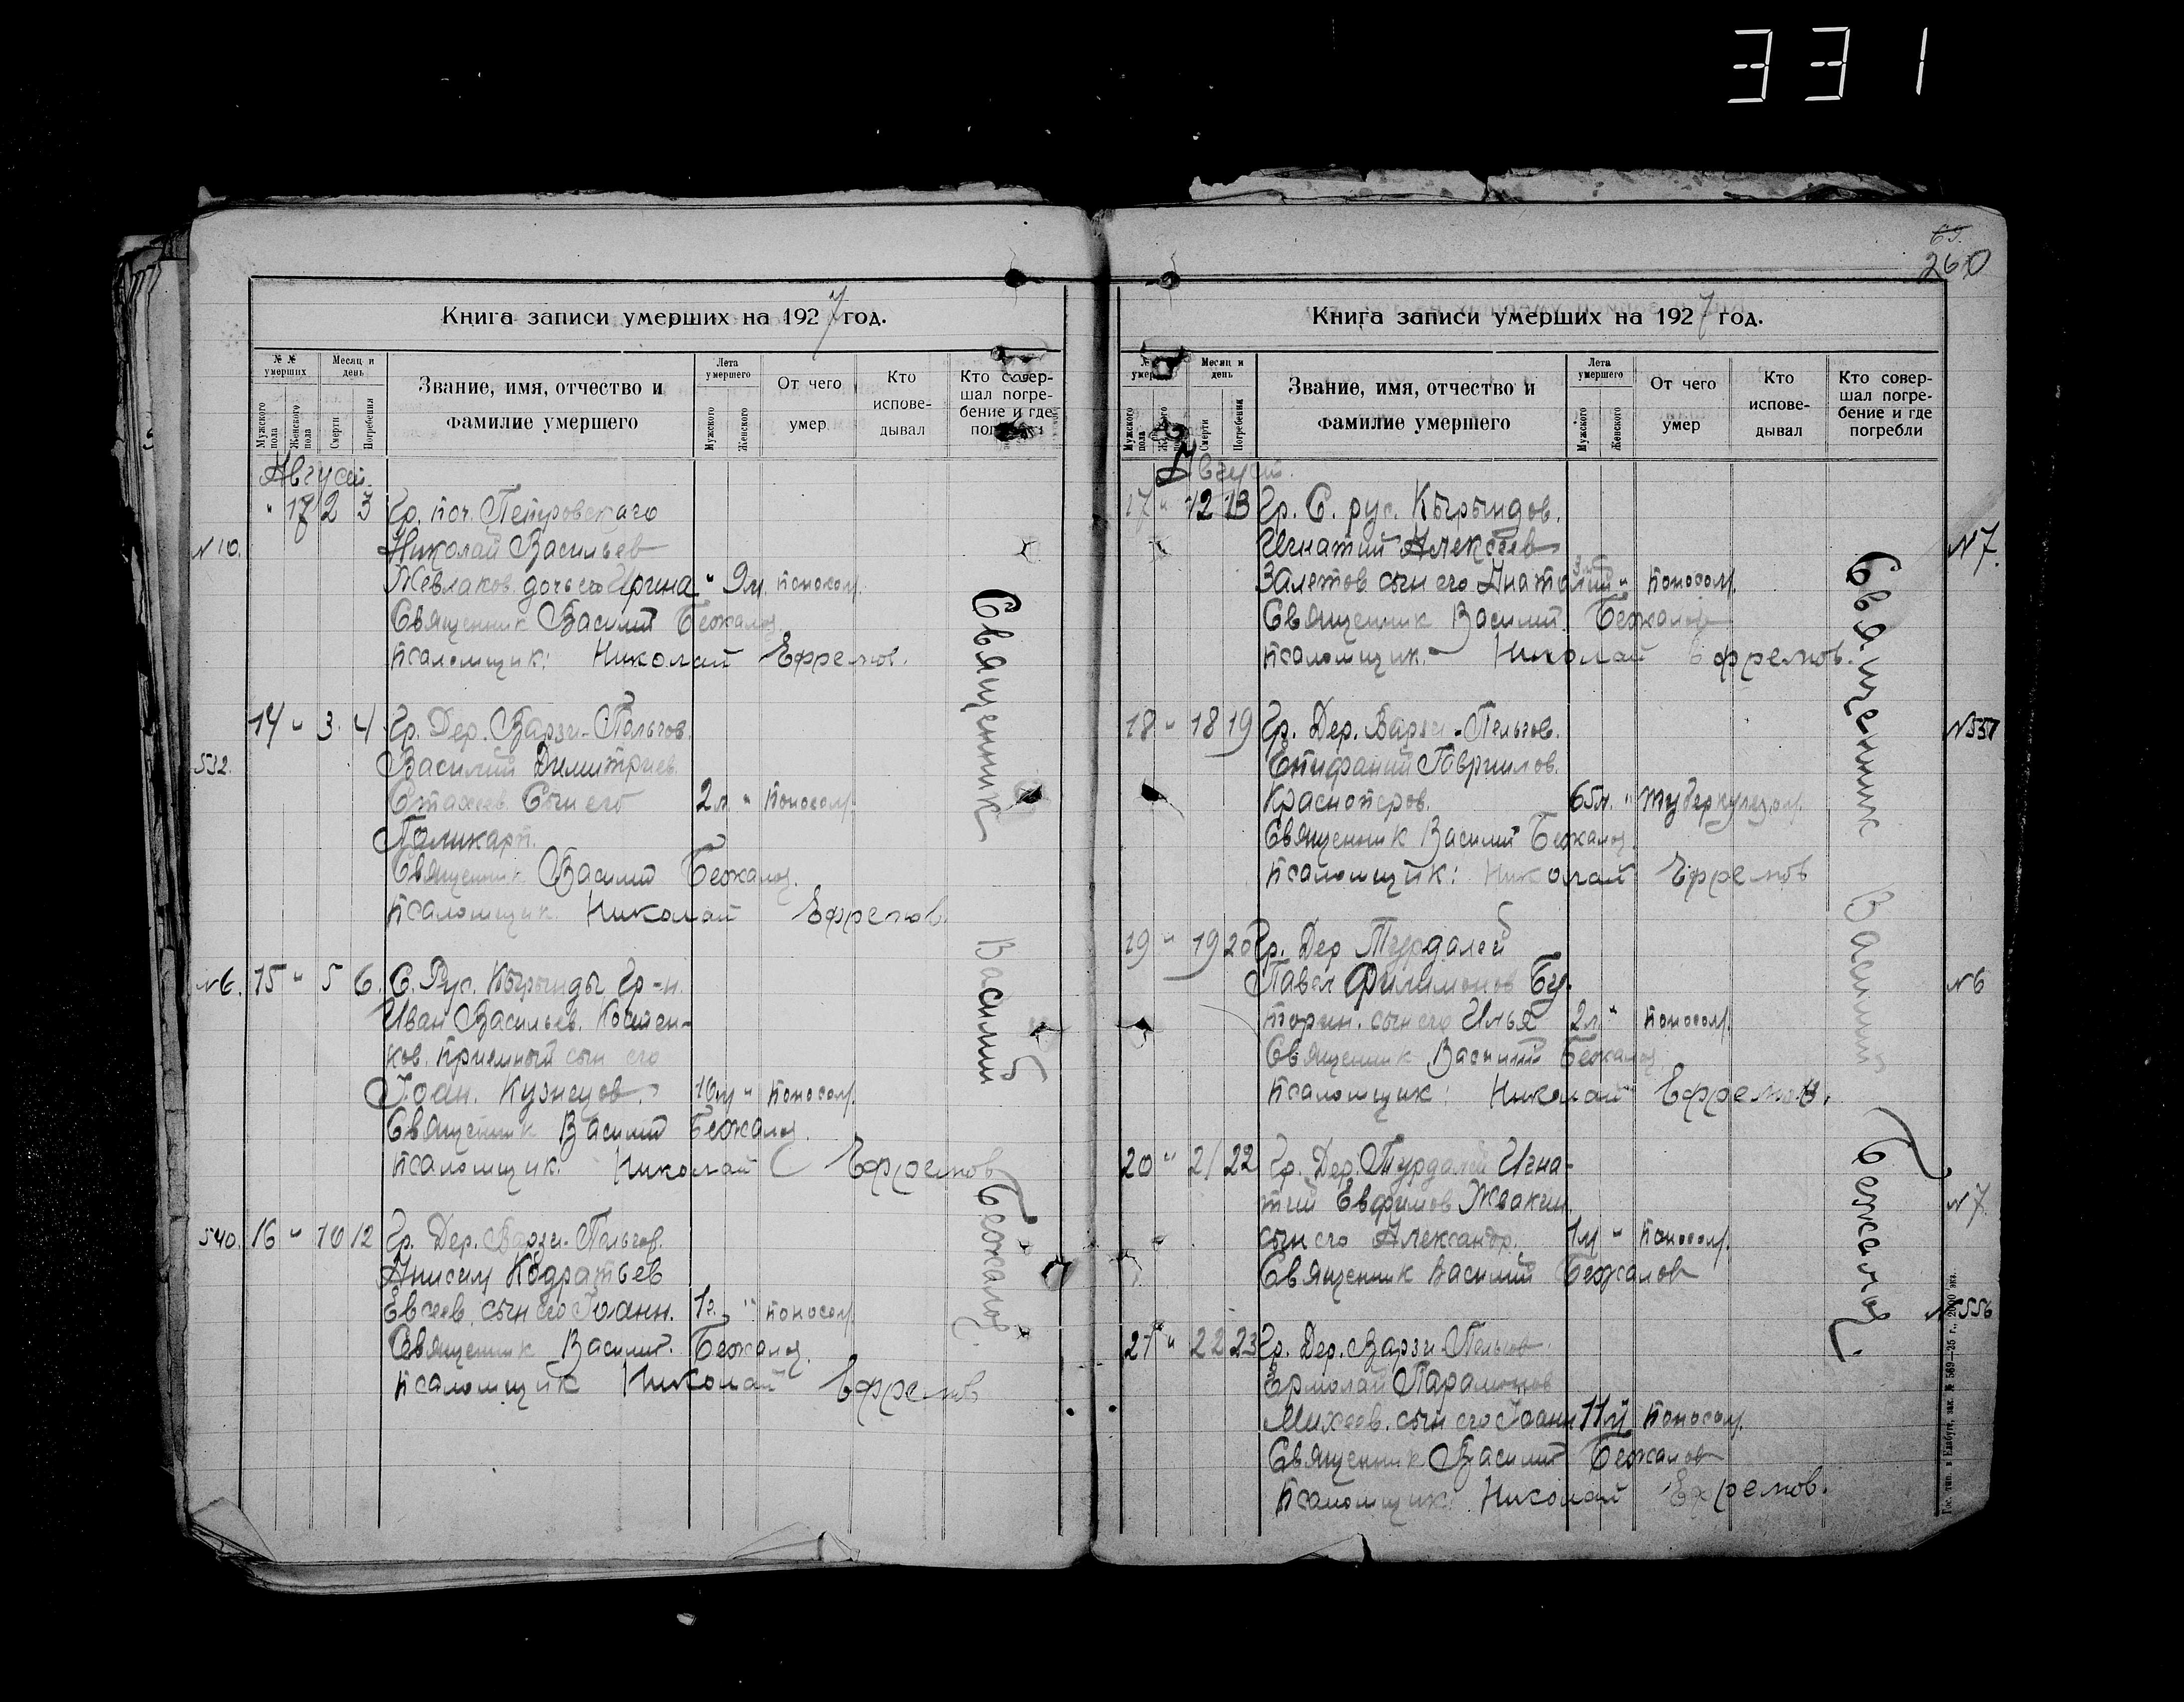 331
Книга записи умерших на 1927 год.
№ № умерших
Мужского пола
Женского пола
Месяц и день
Смерти
Погребения
Звание, имя, отчество и фамилие умершего
Лета умершего
Мужского
Женского
От чего умер
Кто исповедывал
Кто совершал погребение и где
Август.
" 17 2 3 Гр. поч. Петровскаго
N 10. Николай Васильев
Жевлаков. дочь его Ирина " 9м. поносом.
Священник Василий Бежалов
псаломщик: Николай Ефремов.
14 " 3. 4 Гр. Дер. Варзи-Пельгов.
532. Василий Димитриев.
Стахеев. Сын его 2л. " поносом.
Паликарп.
Священник Василий Бежалов.
псаломщик. Николай Ефремов.
N 6. 15 " 5 6. С. Рус. Кырынды Гр-н.
Иван Васильев.
ков. приемный сын его
Иоан. Кузнецов. 10м " поносом.
Священник Василий Бежалов.
псаломщик: Николай Ефремов
540. 16 " 10 12 Гр. Дер. Варзи-Пельгов.
Анисим Кодратьев
Евсеев, сын его Иоанн. 1г. " поносом.
Священник Василий. Бежалов.
псаломщик Николай Ефремов
Священник Василий Бежалов.
69.
260
Книга записи умерших на 1927 год.
Мужского пола
Месяц и день
Смерти
Погребения
Звание, имя, отчество и фамилие умершего
Лета умершего
Мужского
Женского
От чего умер
Кто исповедывал
Кто совершал погребение и где погребли
Август.
17 " 12 13 Гр. С. рус. Кырындов.
Игнатий Алексеев N 7.
Залетов. сын его Анатолий " поносом.
Священник Василий. Бежалов
псаломщик. Николай Ефремов.
18 " 18 19 Гр. Дер. Варзи-Пельгов. N 551
Епифаний Гавриилов.
Красноперов. 65л. " туберкулезом.
Священник Василий Бежалов.
псаломщик: Николай Ефремов
19 " 19 20 Гр. Дер Турдалей
Павел Филимонов Бу- N 6
торин. сын его Илья 2л. " поносом.
Священник Василий Бежалов
псаломщик: Николай Ефремов.
20 " 21 22 Гр. Дер. Турдалей Игна-
тий Евфимов Жвакин N 7.
сын его Александр. 1м " поносом.
Священник Василий Бежалов
N 556
21 " 22 23 Гр. Дер. Варзи-Пельгов.
Ермолай Парамонов
Михеев. сын его Иоанн 11м поносом.
Священник Василий Бежалов
псаломщик: Николай Ефремов.
Священник Василий Бежалов.
Гос. тип. в Елабуге, зак. № 569—25 г., 2000 экз.